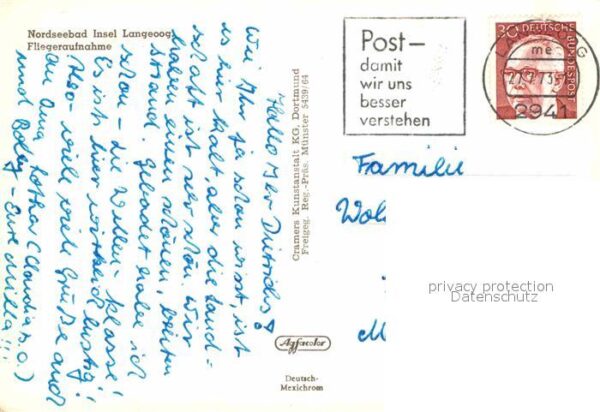 Nordseebad Insel Langeoog
Fliegeraufnahme
Hallo Ihr Dietrichs!
Wie Ihr ja schon wisst, ist
es hier kalt aber die Land-
schaft ist sehr schön. Wir
haben einen schönen, breiten
Strand. Gebadet habe ich
schon - die Wellen - klasse!
Es ist hier wirklich lustig!
Also viele viele Grüße auch
an Oma, Lothar (Claudia u.a.)
und - Eure
Cramers Kunstanstalt KG, Dortmund
Freigeg. Reg.-Präs. Münster 5439/64
Agfacolor
Deutsch-
Mexichrom
Post-
damit
wir uns
besser
verstehen
30 DEUTSCHE
BUNDESPOST
2941
Familie
privacy protection
Datenschutz